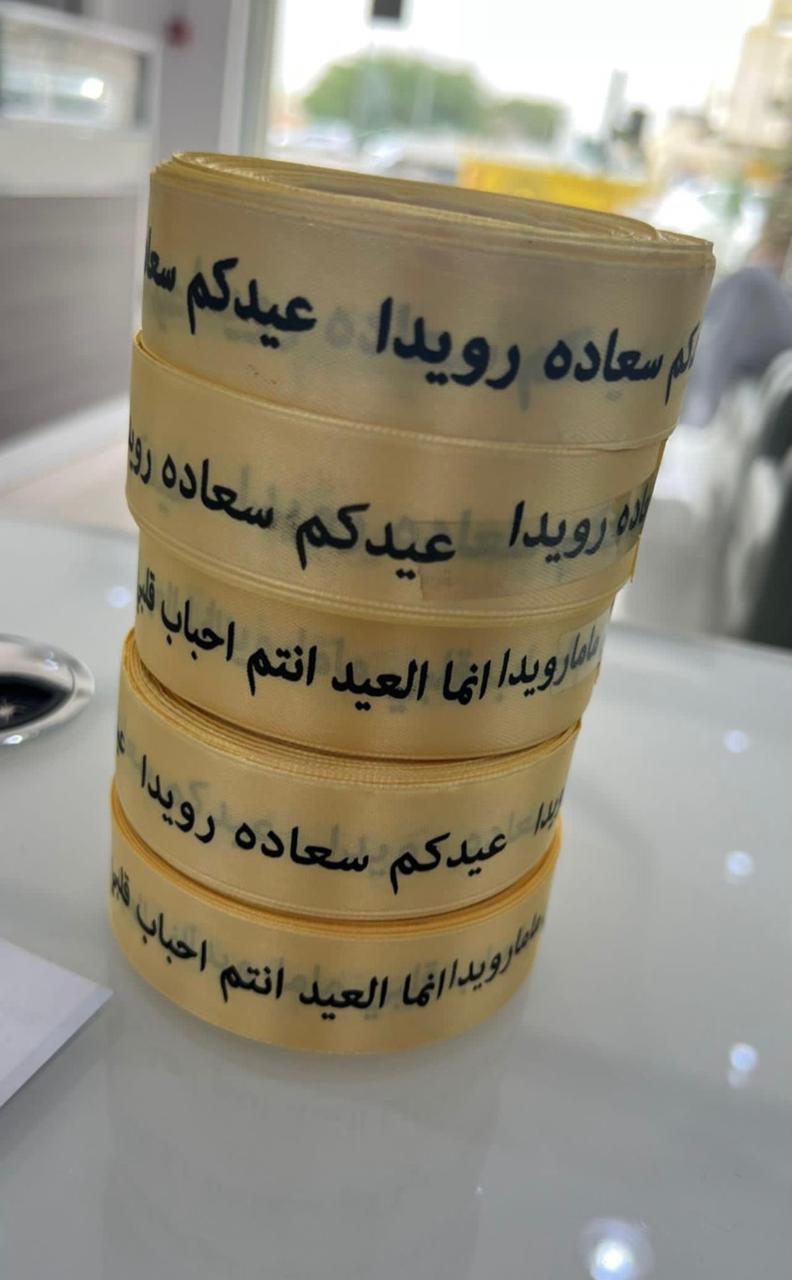 عيدكم سعاده رويدا
رويدا عيدكم سعاده
مامارويدا انما العيد انتم احباب قلبي
رويدا عيدكم سعاده رويدا
مامارويدا انما العيد انتم احباب قلبي